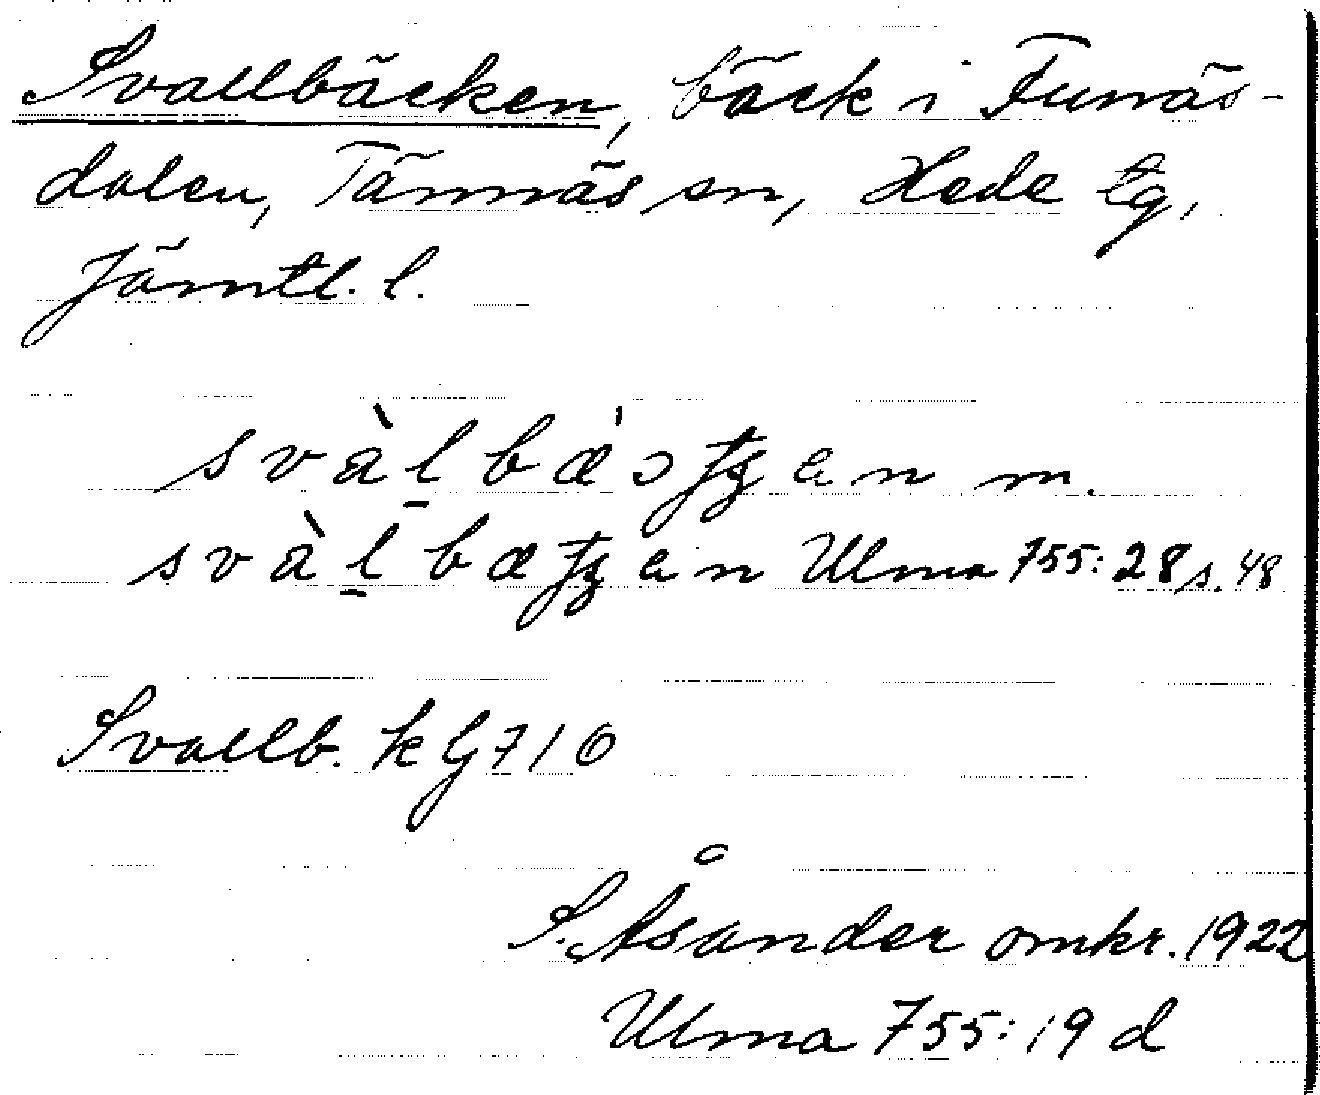 Svallbäcken, bäck i Funäs-
dalen, Tännäs sn, Hede tg,
Jämtl. l.
m.
Ulma 755:28 s. 48
Svallb. kG 710
S. Åsander omkr. 1922
Ulma 755:19 d